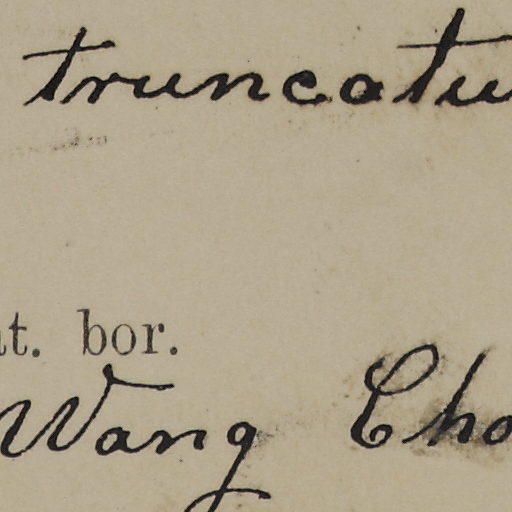 truncatu
at. bor.
Wang Cho